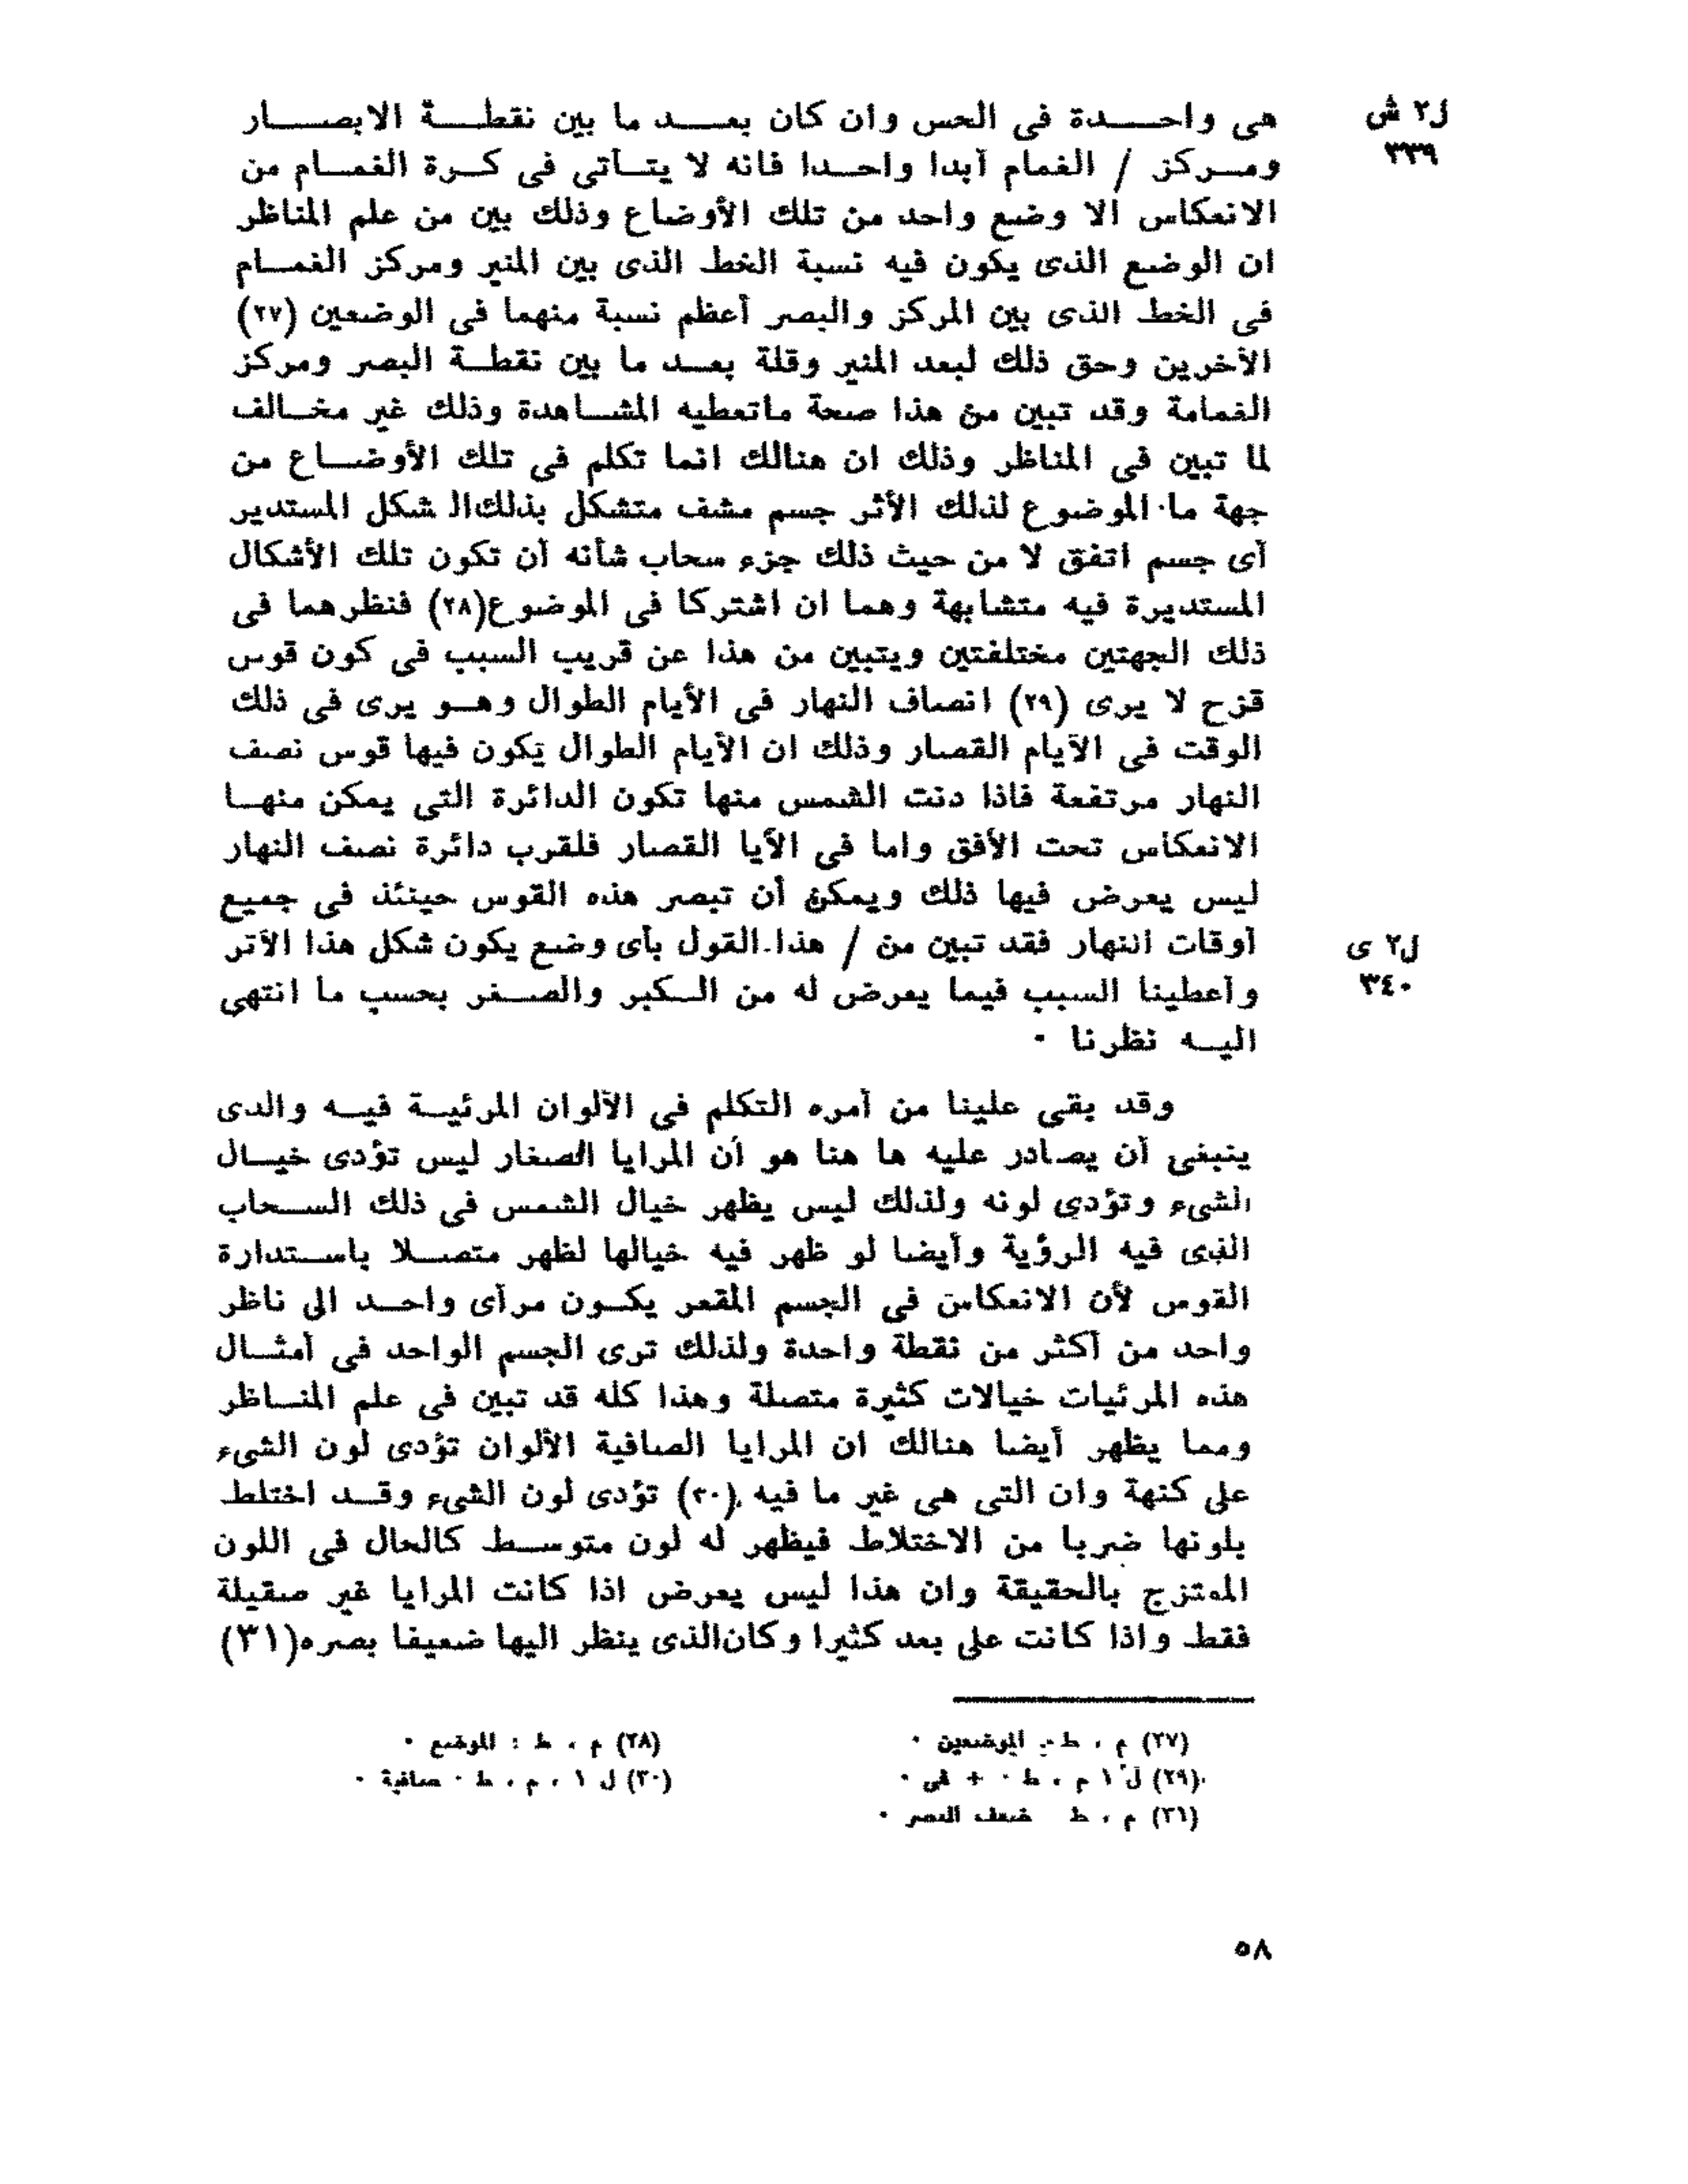 هى واحدة فى الحس وان كان بعد ما بين نقطة الابصار
ل٢ ش
ومركز / الغمام أبدا واحدا فانه لا يتأتى فى كرة الغمام من
٣٣٩
الانعكاس الا وضع واحد من تلك الأوضاع وذلك بين من علم المناظر
ان الوضع الذى يكون فيه نسبة الخط الذى بين المنير ومركز الغمام
فى الخط الذى بين المركز والبصر أعظم نسبة منهما فى الوضعين (٢٧)
الأخرين وحق ذلك لبعد المنير وقلة بعد ما بين نقطة البصر ومركز
الغمامة وقد تبين من هذا صحة ماتعطيه المشاهدة وذلك غير مخالف
لما تبين فى المناظر وذلك ان هنالك انما تكلم فى تلك الأوضاع من
جهة ما الموضوع لذلك الأثر جسم مشف متشكل بذلك الـ شكل المستدير
أى جسم اتفق لا من حيث ذلك جزء سحاب شأنه أن تكون تلك الأشكال
المستديرة فيه متشابهة وهما ان اشتركا فى الموضوع(٢٨) فنظرهما فى
ذلك الجهتين مختلفتين ويتبين من هذا عن قريب السبب فى كون قوس
قزح لا يرى (٢٩) انصاف النهار فى الأيام الطوال وهو يرى فى ذلك
الوقت فى الأيام القصار وذلك ان الأيام الطوال يكون فيها قوس نصف
النهار مرتفعة فاذا دنت الشمس منها تكون الدائرة التى يمكن منها
الانعكاس تحت الأفق واما فى الأيا القصار فلقرب دائرة نصف النهار
ليس يعرض فيها ذلك ويمكن أن تبصر هذه القوس حينئذ فى جميع
أوقات النهار فقد تبين من / هذا القول بأى وضع يكون شكل هذا الأثر
ل٢ ى
وأعطينا السبب فيما يعرض له من الكبر والصغر بحسب ما انتهى
٣٤٠
اليه نظرنا ٠
وقد بقى علينا من أمره التكلم فى الألوان المرئية فيه والدى
ينبغى أن يصادر عليه ها هنا هو أن المرايا الصغار ليس تؤدى خيال
الشىء وتؤدى لونه ولذلك ليس يظهر خيال الشمس فى ذلك السحاب
الذى فيه الرؤية وأيضا لو ظهر فيه خيالها لظهر متصلا باستدارة
القوس لأن الانعكاس فى الجسم المقعر يكون مرأى واحد الى ناظر
واحد من أكثر من نقطة واحدة ولذلك ترى الجسم الواحد فى أمثال
هذه المرئيات خيالات كثيرة متصلة وهذا كله قد تبين فى علم المناظر
ومما يظهر أيضا هنالك ان المرايا الصافية الألوان تؤدى لون الشىء
على كنهة وان التى هى غير ما فيه (٣٠) تؤدى لون الشىء وقد اختلط
بلونها ضربا من الاختلاط فيظهر له لون متوسط كالحال فى اللون
الممتزج بالحقيقة وان هذا ليس يعرض اذا كانت المرايا غير صقيلة
فقط واذا كانت على بعد كثيرا وكان الذى ينظر اليها ضعيفا بصره(٣١)
(٢٧) م ، ط : الموضعين ٠
(٢٨) م ، ط : الموضع ٠
(٢٩) ل ١ م ، ط ٠ + فى ٠
(٣٠) ل ١ ، م ، ط ٠ صافية ٠
(٣١) م ، ط ضعف البصر ٠
٥٨